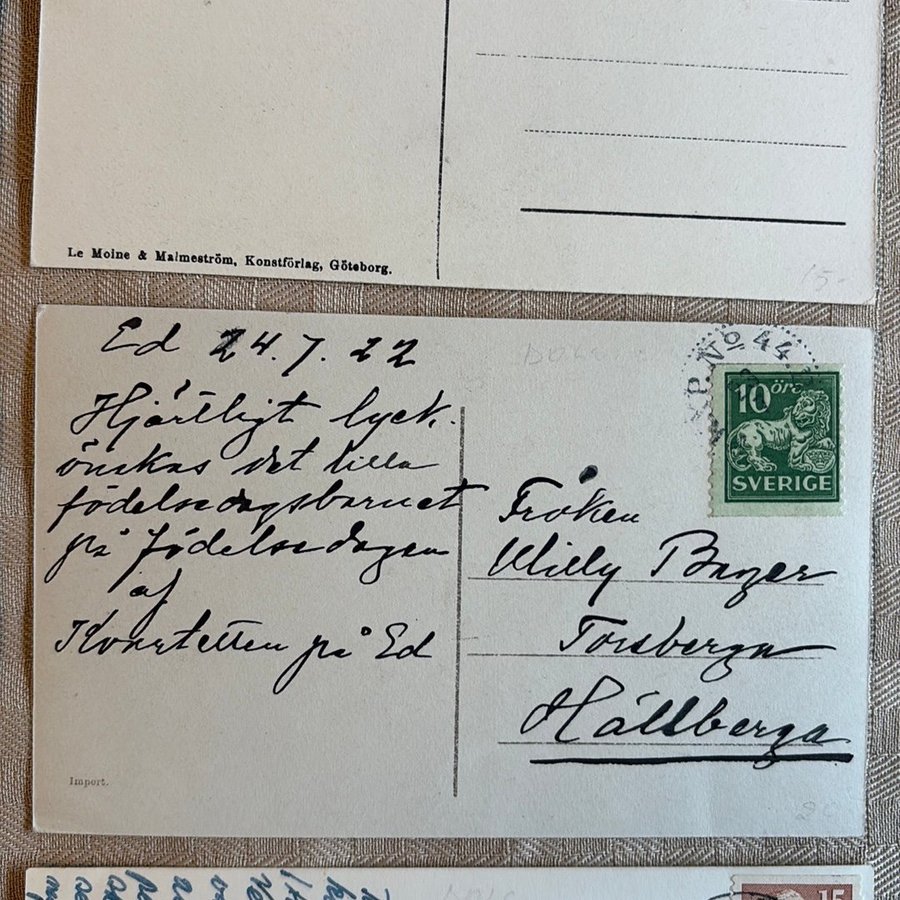 Le Moine & Malmeström, Konstförlag, Göteborg.
15-
Ed 24.7.22
Hjärtligt lyck.
önskas det lilla
födelsedagsbarnet
på födelsedagen
af
Kvartetten på Ed
Import.
No 44
10 öre
SVERIGE
Fröken
Willy Bager
Torsberga
Hällberga
15